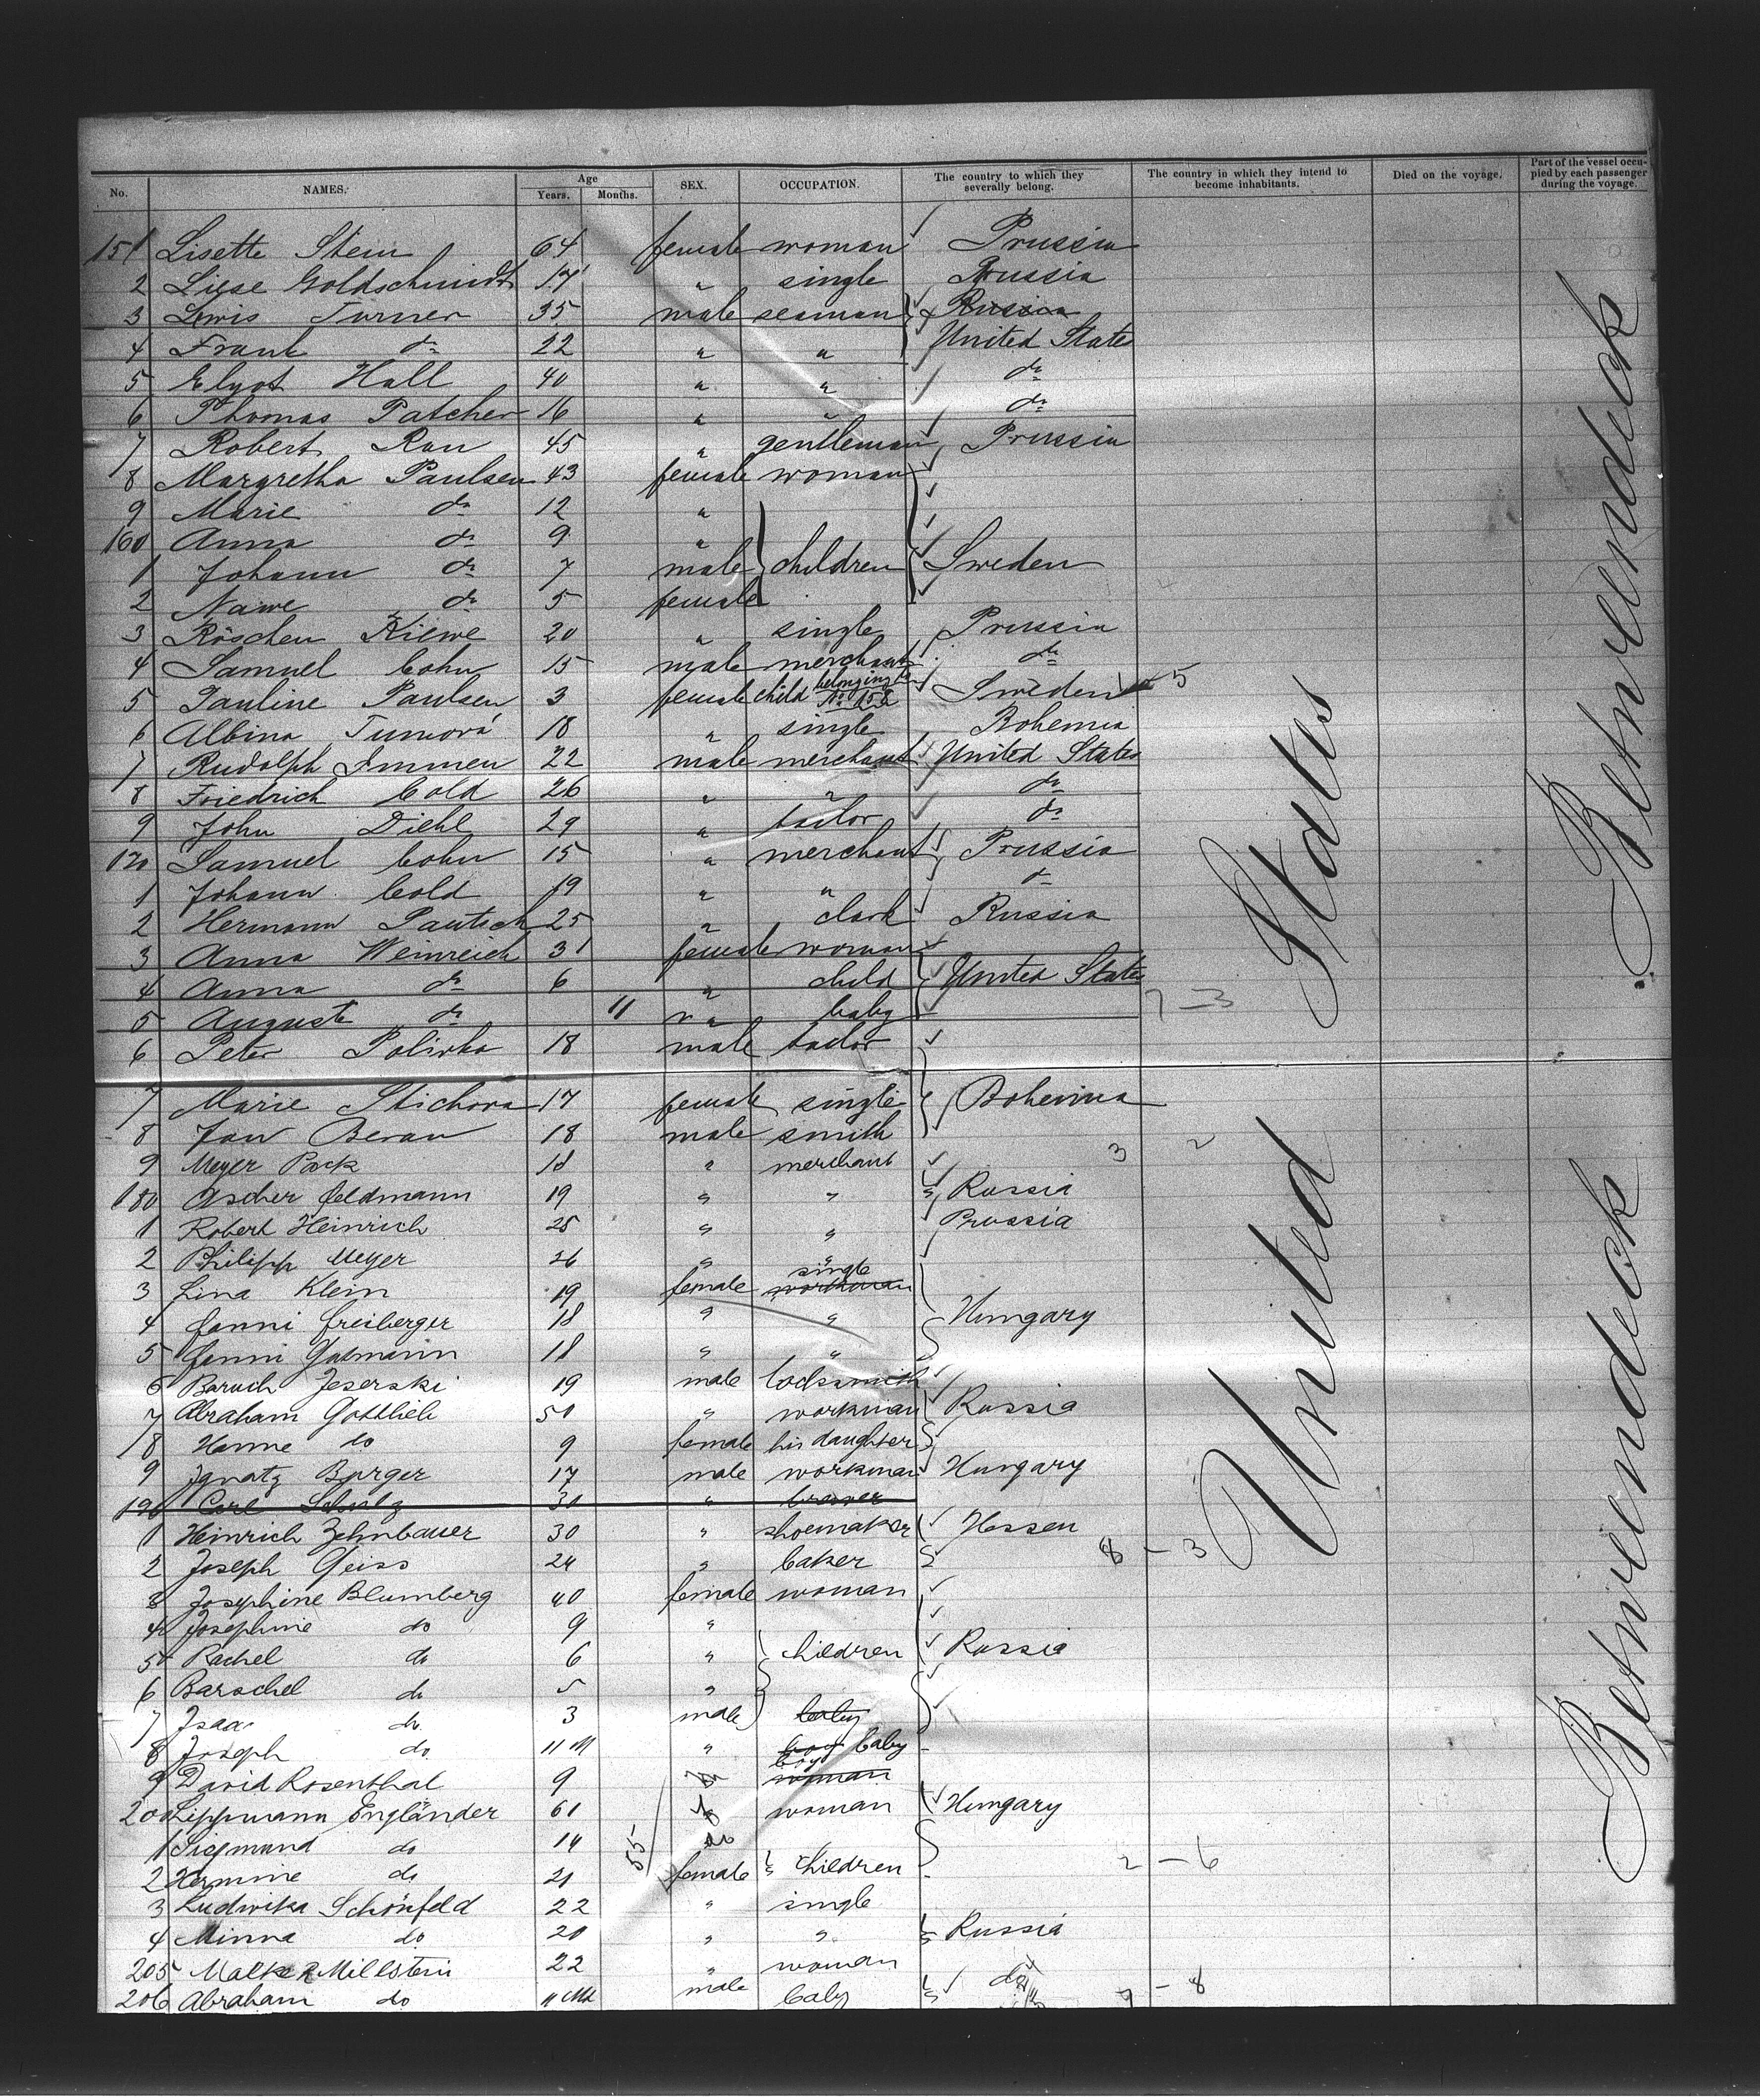 No. NAMES. Age Years. Months. SEX. OCCUPATION. The country to which they severally belong. The country in which they intend to become inhabitants. Died on the voyage. Part of the vessel occupied by each passenger during the voyage.
151 Lisette Stein 64 female woman Prussia
2 Liese Goldschmidt 17 " single Prussia
3 Lewis Turner 35 male seaman Russia
4 Frank do 22 " " United States
5 Elyot Hall 40 " " do
6 Thomas Patcher 16 " " do
7 Robert Rau 45 " gentleman Prussia
8 Margretha Paulsen 43 female woman
9 Marie do 12 "
160 Anna do 9 "
1 Johann do 7 male children Sweden
2 do 5 female
3 Röschen Kiewe 20 " single Prussia
4 Samuel Cohn 15 male merchant do
5 Pauline Paulsen 3 female child belonging to No 158 Sweden 5
6 Albina 18 " single Bohemia
7 Rudolph Immen 22 male merchant United States
8 Friedrich Cold 26 " " do
9 John Diehl 29 " tailor do
170 Samuel Cohn 15 " merchant Prussia
1 Johann Cold 19 " " do
2 Hermann Pautsch 25 " clark Russia
3 Anna Weinreich 31 female woman
4 Anna do 6 " child United States
5 Auguste do 11 " baby 7-3
6 Peter Poliwka 18 male tailor
7 Marie Stichova 17 female single Bohemia
8 Jan Beran 18 male smith
9 Meyer Pack 18 " merchant 3 2
180 Ascher Feldmann 19 " " Russia
1 Robert Heinrich 25 " " Prussia
2 Philipp Meyer 26 " "
3 Lina Klein 19 female single workman
4 Fanni Freiberger 18 " " Hungary
5 Fanni Gutmann 18 " "
6 Baruch Jeserski 19 male locksmith
7 Abraham Gottlieb 50 " workman Russia
8 Hanne do 9 female his daughter
9 Ignatz Burger 17 male workman Hungary
190 Carl Schulz 30 "
1 Heinrich Zehnbauer 30 " shoemaker Hessen
2 Joseph Geiss 24 " baker 8-3
3 Josephine Blumberg 40 female woman
4 Josephine do 9 "
5 Rachel do 6 " children Russia
6 Barochel do 5 "
7 Isaac do 3 male baby
8 Joseph do 11 M " boy baby
9 David Rosenthal 9 boy woman
200 Lippmann Engländer 61 woman Hungary
1 Sigmund do 14 do
2 Hermine do 21 female children 2-6
3 Ludwika Schönfeld 22 " single
4 Minna do 20 " " Russia
205 Malke Millstein 22 " woman
206 Abraham do male baby do 7-8
55
United States
Betweendeck
Betweendeck